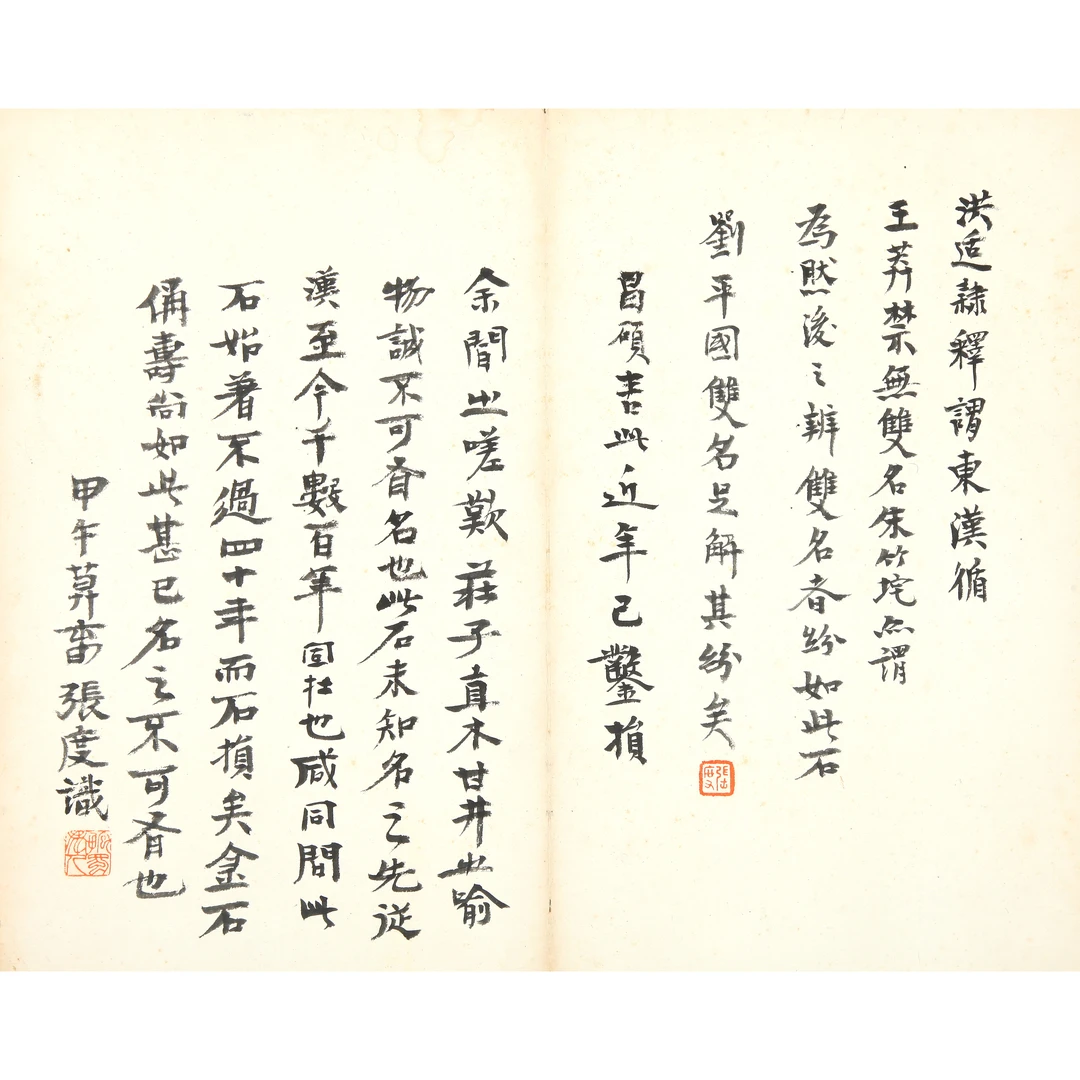 洪适隸釋謂東漢循
王莽禁無雙名朱竹垞亦謂
為然後之辨雙名者紛如此石
劉平國雙名足解其紛矣
張度
昌碩書此近年已鑿損
余聞之嗟歎莊子直木甘井之喻
物誠不可有名也此石未知名之先從
漢至今千數百年固在也咸同間此
石始著不過四十年而石損矣金石
偁壽尚如此甚已名之不可有也
甲午莫畣張度識